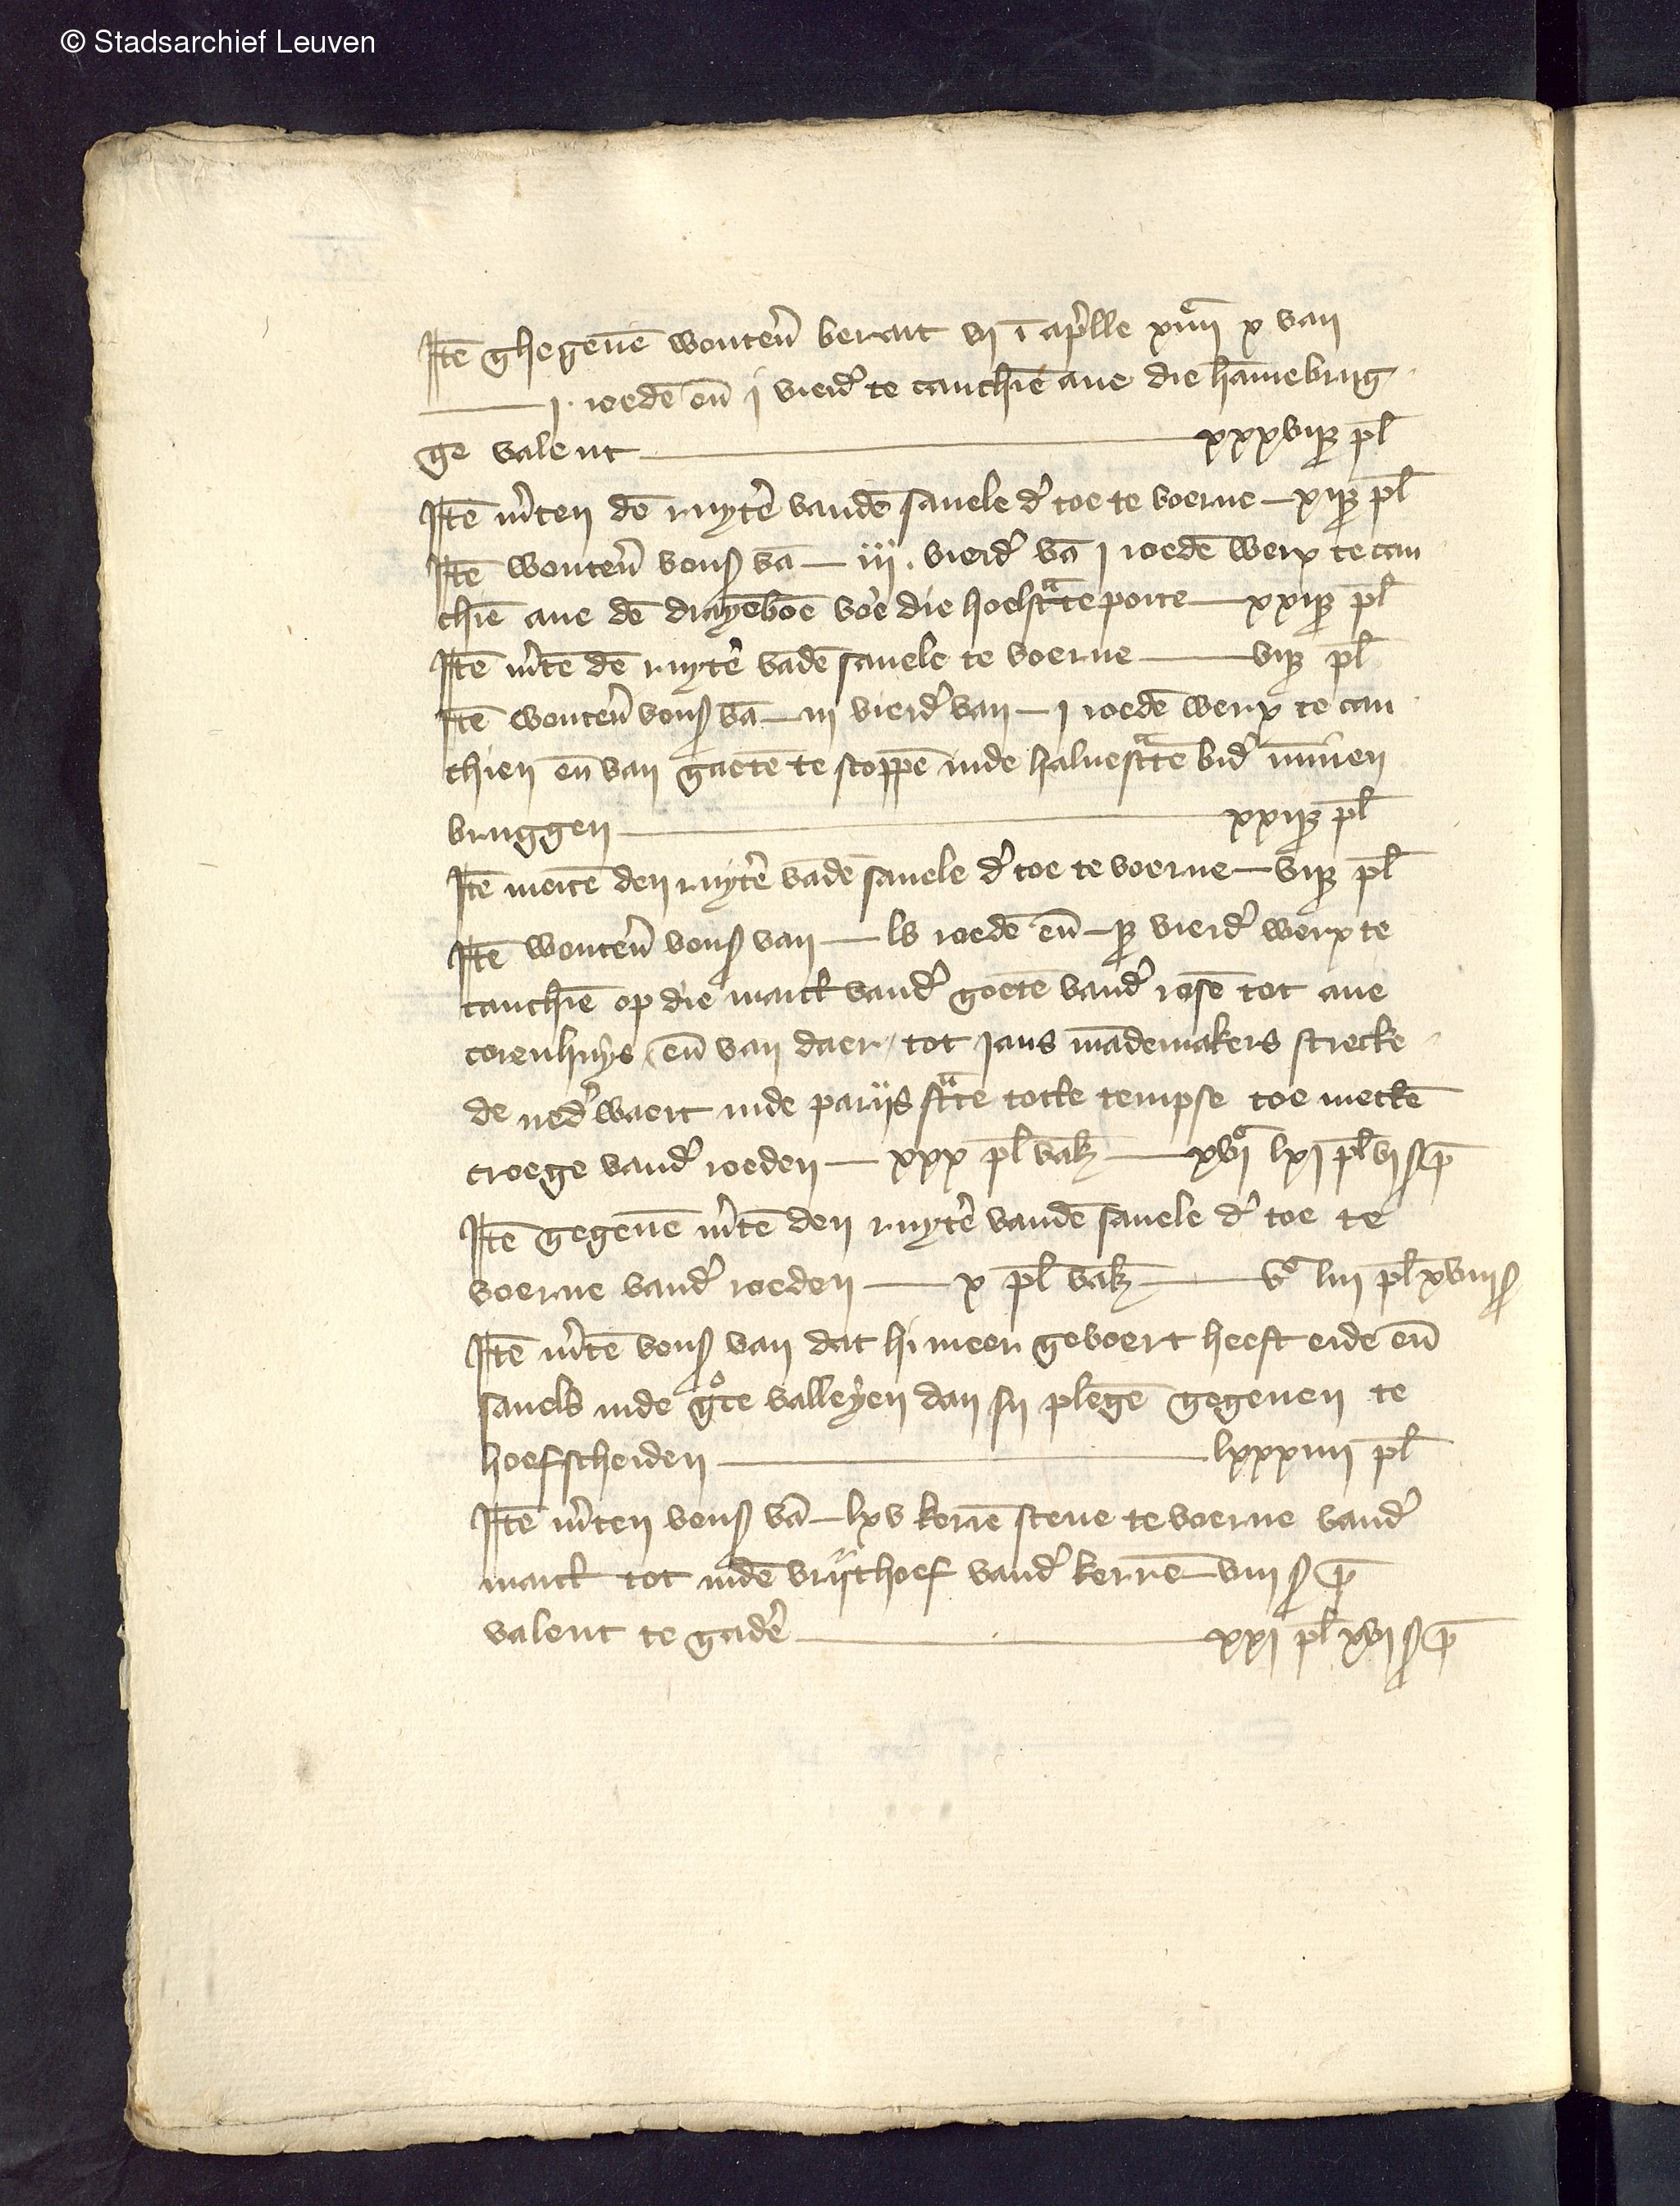 © Stadsarchief Leuven
Itē ghegeuē woutern̄ beraert vij ī aprille xiiijᶜ x van
j. roedē en̄ j vierd' te cauchiē ane die hamebrug
ge valent xxxvijꝫ pl̄
Itē m'ten dē ruyt'e vandē sauele d' toe te voerne xijꝫ pl̄
Itē woutern̄ vors vā iij. vierd' vā j roedē werx te cau
chiē ane dē drayēboē voer die hoelstᵃteporte xxijꝫ pl̄
Itē m'tē dē ruyt'e vādē sauele te voerne vijꝫ pl̄
Itē woutern̄ vors vā iij vierd' van j roedē werx te cau
chien en̄ van gaetē te stoppē inde haluestᵃte bid'
bruggen xxijꝫ pl̄
Itē mertē den ruyt'e vādē sauele d' toe te voerne vijꝫ pl̄
Itē woutern̄ vors van lv roedē en̄ ꝫ vierd' werx te
cauchiē op die marct vand' goetē vand' rosē tot ane
corenhuys en̄ van daer tot jans mādemakers strecke
de ned'waert inde pariis stᵃte totte tempse toe
croege vand' roeden xxx pl̄ valꝫ xviᶜ lxj pl̄ vj s p̄
Itē gegeuē m'tē den ruyt'e vandē sauele d' toe te
voerne vand' roeden x pl̄ valꝫ vᶜ liij pl̄ xviij s
Itē m'tē vors van dat hi meer gevoert heeft erde en̄
sauels inde gᵒte valleyen dan si plegē gegeuen te
hoefscheiden lxxxiiij pl̄
Itē m'ten vors vā lxv kerrē stene te voerne vand'
marct tot indē vrijthoef vand' kerrē viij s p̄
valent te gad'e xxj pl̄ xvj s p̄